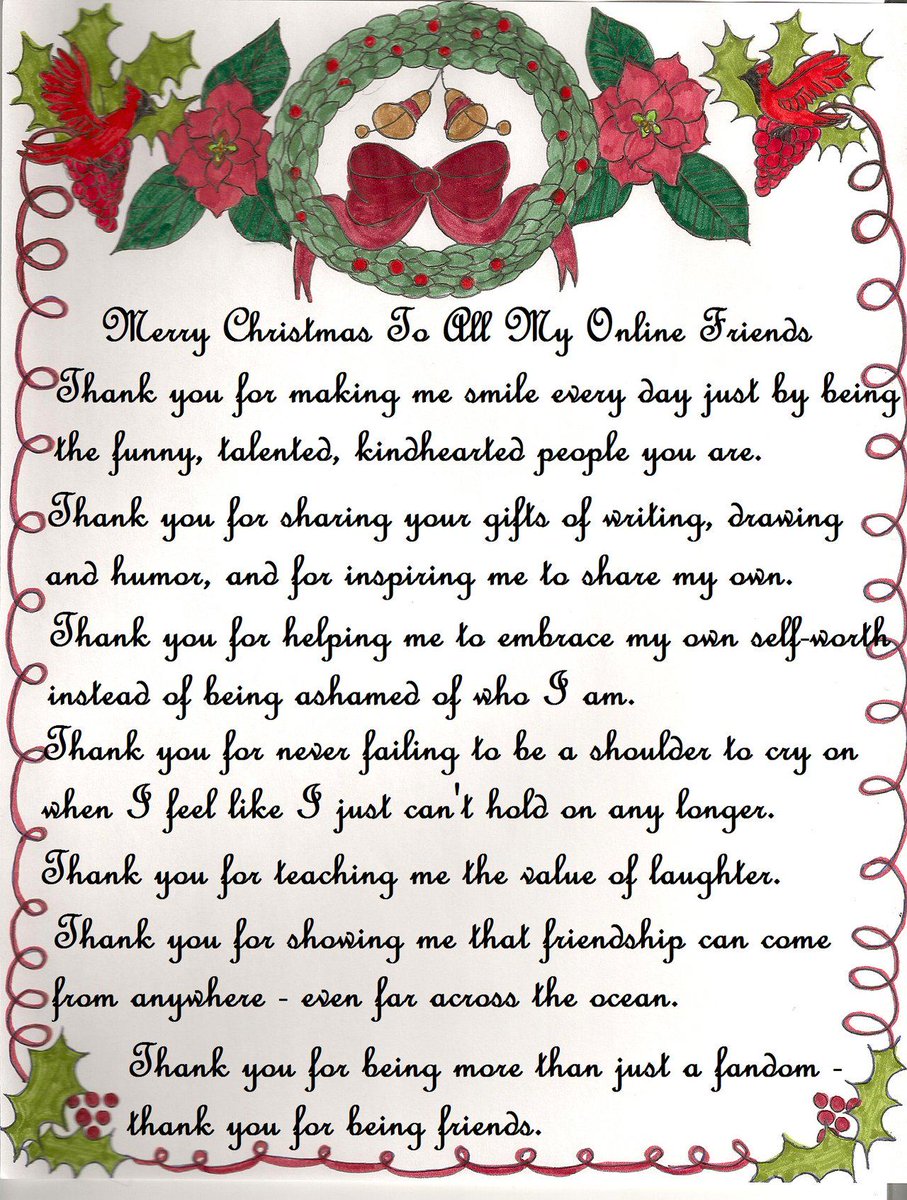 Merry Christmas To All My Online Friends
Thank you for making me smile every day just by being
the funny, talented, kindhearted people you are.
Thank you for sharing your gifts of writing, drawing
and humor, and for inspiring me to share my own.
Thank you for helping me to embrace my own self-worth
instead of being ashamed of who I am.
Thank you for never failing to be a shoulder to cry on
when I feel like I just can't hold on any longer.
Thank you for teaching me the value of laughter.
Thank you for showing me that friendship can come
from anywhere - even far across the ocean.
Thank you for being more than just a fandom -
thank you for being friends.